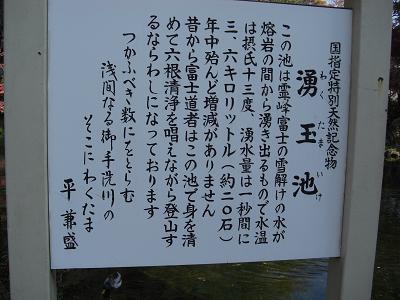 国指定特別天然記念物
わく たま いけ
湧玉池
この池は霊峰富士の雪解けの水が
熔岩の間から湧き出るもので水温
は摂氏十三度、湧水量は一秒間に
三、六キロリットル(約二〇石)
年中殆んど増減がありません
昔から富士道者はこの池で身を清
めて六根清浄を唱えながら登山す
るならわしになっております
つかふべき数にをとらむ
浅間なる御手洗川の
そこにわくたま
平 兼盛